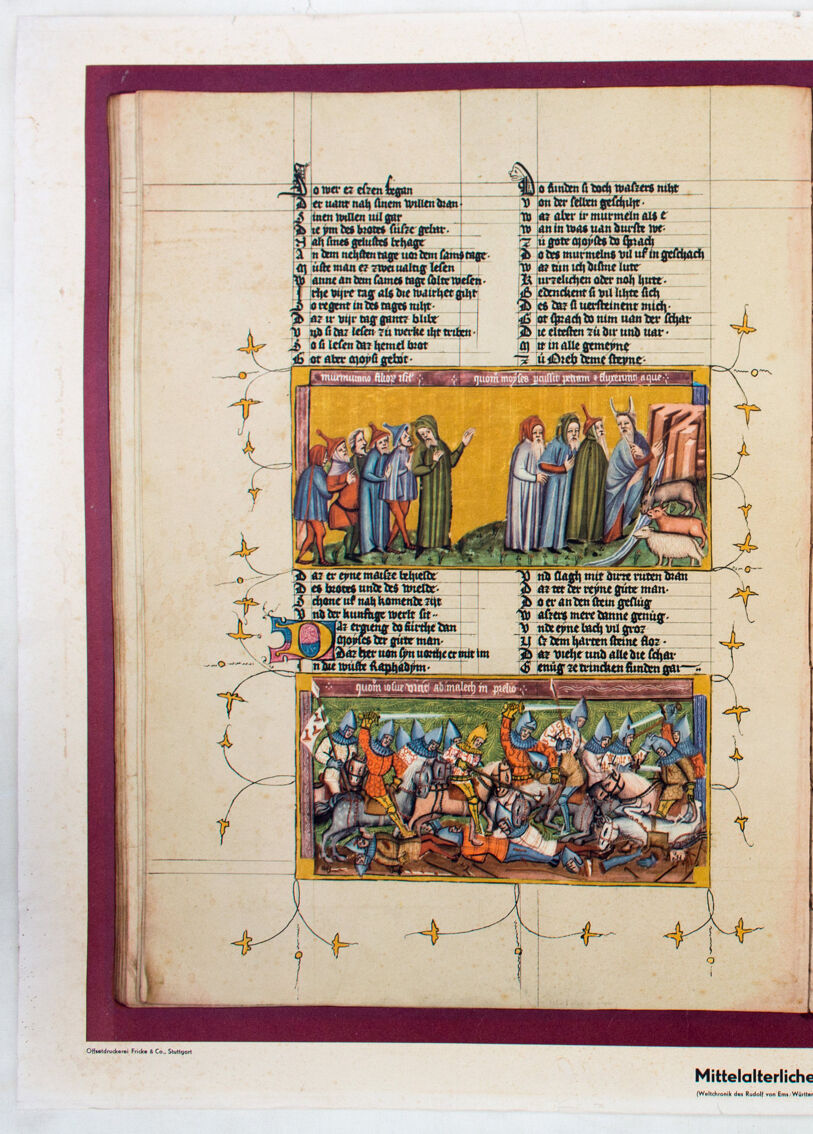 Do wer ez eszen began
Der uant nah sinem willen dran.
Sinen willen uil gar
Die ym des brotes süsze gebar.
Nah sines gelustes behage
An dem nehsten tage uor dem sams tage.
Müste man ez zweualtig lesen
Wanne an dem sames tage solte wesen.
Ir vijre tag als die warheit giht
So regent in des tages niht.
Daz ir vijr tag gantz blibe
Vnd si daz lesen zü werke iht triben.
So si lesen daz hemel brot
Got aber moysi gebot.
murmuratio filioꝝ isrl
Daz er eyne masze behielde
Des brotes unde des wielde.
Schone uf nah komende zijt
Vnd der kunftige werlt sit
Daz ergieng do fürthe dan
Moyses der güte man.
Daz her von syn uorthe er mit im
In die wüste Raphadym.
Do funden si doch waszers niht
Von der selben geschiht.
Waz aber ir murmeln als e
Wan in was uan durste we.
Zü gote moyses do sprach
Do des murmelns vil uf in geschach
Waz tün ich disme lute
Kurzelichen oder noh hute.
Gedenckent si vil lihte sich
Dest daz si uersteinent mich.
Got sprach do nim uan der schar
Die eltesten zü dir und uar.
Mir in alle gemeyne
Zü Oreb deme steyne.
quom moyses pcussit petram & fluxerunt aque
Vnd slagh mit dirre ruten dran
Daz tet der reyne güte man.
Do er an den stein geslüg
Waszers mere danne genüg.
Vnde eyne bach vil groz
Uſ dem harten steine floz.
Daz viehe und alle die schar
Genüg ze trincken funden gar
quom iosue vicit admalech in prelio
Offsetdruckerei Fricke & Co., Stuttgart
Mittelalterliche
(Weltchronik des Rudolf von Ems. Württem